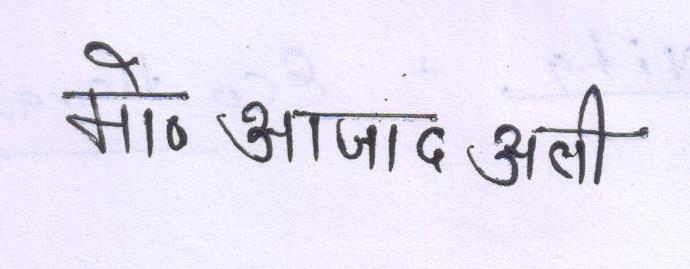 मो० आजाद अली